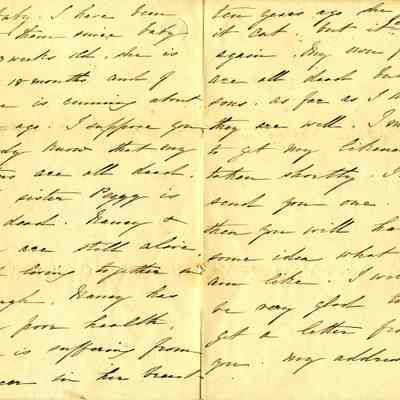 baby. I have been
them since baby
weeks old. She is
18 months and I
is cunning about
ago. I suppose you
know that my
are all dead.
sister Peggy is
dead. Nancy &
are still alive
living together in
Nancy has
poor health,
is suffering from
in her breast
ten years ago she
it cut. but it
again. My own
are all dead but
sons. as far as I
they are well. I
to get my likeness
taken shortly. I
send you one.
then you will ha
some idea what
am like. I will
be very glad to
get a letter fro
you. my address